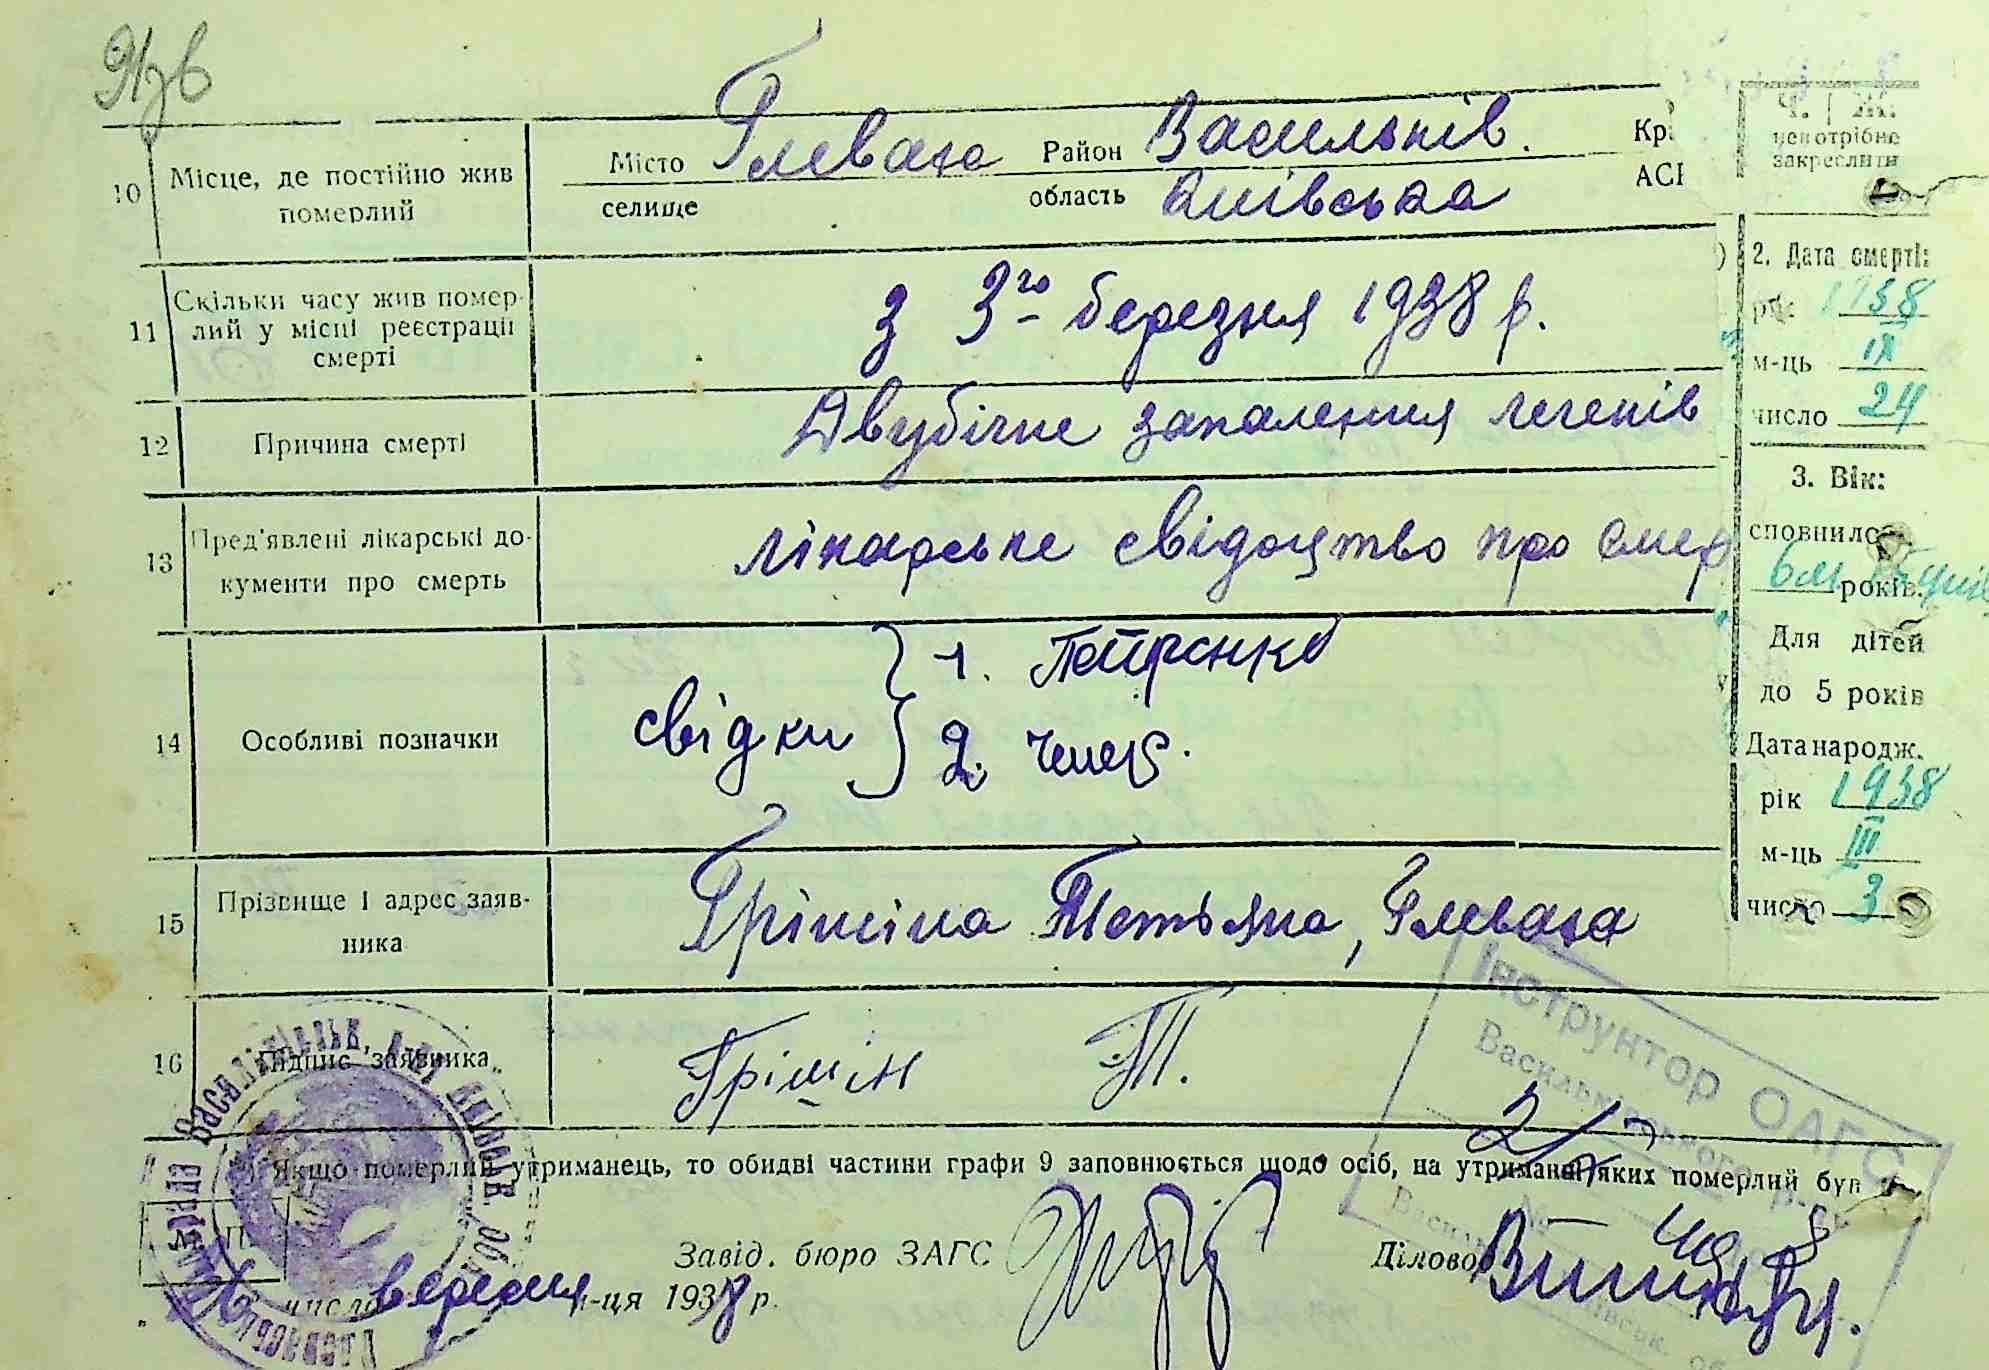 10 Місце, де постійно жив померлий
Місто селище Глеваха Район Васильків. область Київська
11 Скільки часу жив помер-
лий у місці реєстрації
смерті
З 3го березня 1938 р.
12 Причина смерті
Двубічне запалення легенів
13 Пред'явлені лікарські до-
кументи про смерть
лікарське свідоцтво про смер
14 Особливі позначки
свідки 1. Петренко
2.
15 Прізвище і адрес заяв-
ника
Грішіна Тетьяна, Глеваха
16 Підпис заявника
Грішін Т.
Якщо померлий утриманець, то обидві частини графи 9 заповнюється щодо осіб, на утриманні яких померлий був
М. П.
Завід. бюро ЗАГС
Діловод
26 число вересня м-ця 1938 р.
Ч. | Ж.
непотрібне
закреслити
2. Дата смерті:
рік 1938
м-ць IX
число 24
3. Вік:
сповнилось
6 м. років.
Для дітей
до 5 років
Дата народж.
рік 1938
м-ць III
число 3
Інструктор ОАГС
Васильківського р-ну